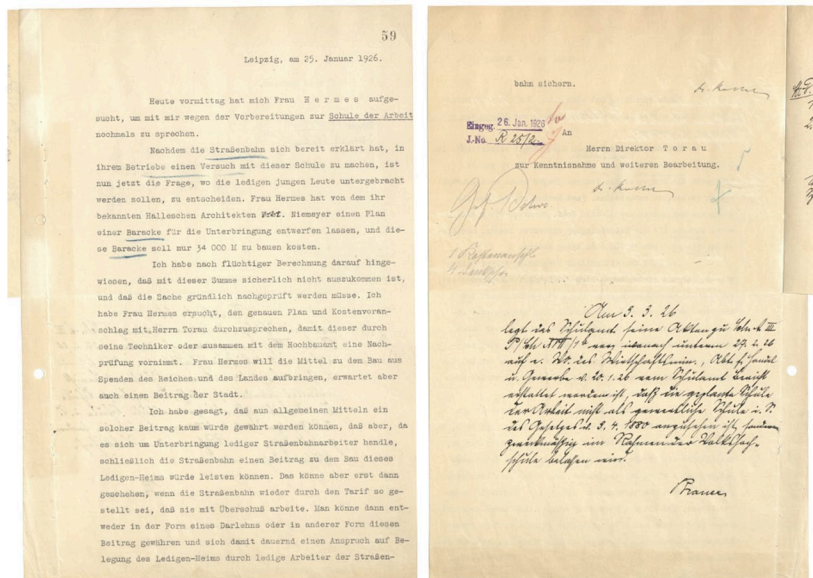 59
Leipzig, am 25. Januar 1926.
Heute vormittag hat mich Frau Hermes aufge-
sucht, um mit mir wegen der Vorbereitungen zur Schule der Arbeit
nochmals zu sprechen.
Nachdem die Straßenbahn sich bereit erklärt hat, in
ihrem Betriebe einen Versuch mit dieser Schule zu machen, ist
nun jetzt die Frage, wo die ledigen jungen Leute untergebracht
werden sollen, zu entscheiden. Frau Hermes hat von dem ihr
bekannten Halleschen Architekten Niemeyer einen Plan
einer Baracke für die Unterbringung entwerfen lassen, und die-
se Baracke soll nur 34 000 M zu bauen kosten.
Ich habe nach flüchtiger Berechnung darauf hinge-
wiesen, daß mit dieser Summe sicherlich nicht auszukommen ist,
und daß die Sache gründlich nachgeprüft werden müsse. Ich
habe Frau Hermes ersucht, den genauen Plan und Kostenvoran-
schlag mit Herrn Torau durchzusprechen, damit dieser durch
seine Techniker oder zusammen mit dem Hochbauamt eine Nach-
prüfung vornimmt. Frau Hermes will die Mittel zu dem Bau aus
Spenden des Reiches und des Landes aufbringen, erwartet aber
auch einen Beitrag der Stadt.
Ich habe gesagt, daß aus allgemeinen Mitteln ein
solcher Beitrag kaum würde gewährt werden können, daß aber, da
es sich um Unterbringung lediger Straßenbahnarbeiter handle,
schließlich die Straßenbahn einen Beitrag zu dem Bau dieses
Ledigen-Heims würde leisten können. Das könne aber erst dann
geschehen, wenn die Straßenbahn wieder durch den Tarif so ge-
stellt sei, daß sie mit Überschuß arbeite. Man könne dann ent-
weder in der Form eines Darlehns oder in anderer Form diesen
Beitrag gewähren und sich damit dauernd einen Anspruch auf Be-
legung des Ledigen-Heims durch ledige Arbeiter der Straßen-
bahn sichern.
Eingeg. 26. Jan. 1926
J.-No. R 25/2
An
Herrn Direktor Torau
zur Kenntnisnahme und weiteren Bearbeitung.
Am 3. 3. 26
legt das Schulamt seine Akten zu
27. 2. 26
auf e. VO. des Wirtschaftsmin., Abt. f. Handel
u. Gewerbe v. 20. 1. 26 vom Schulamt Bericht
erstattet worden ist, daß die geplante Schule
der Arbeit nicht als gewerbliche Schule i. S.
des Gesetzes v. 3. 4. 1880 anzusehen ist, sondern
zweckmäßig im Rahmen der Volkshoch-
schule belassen wird.